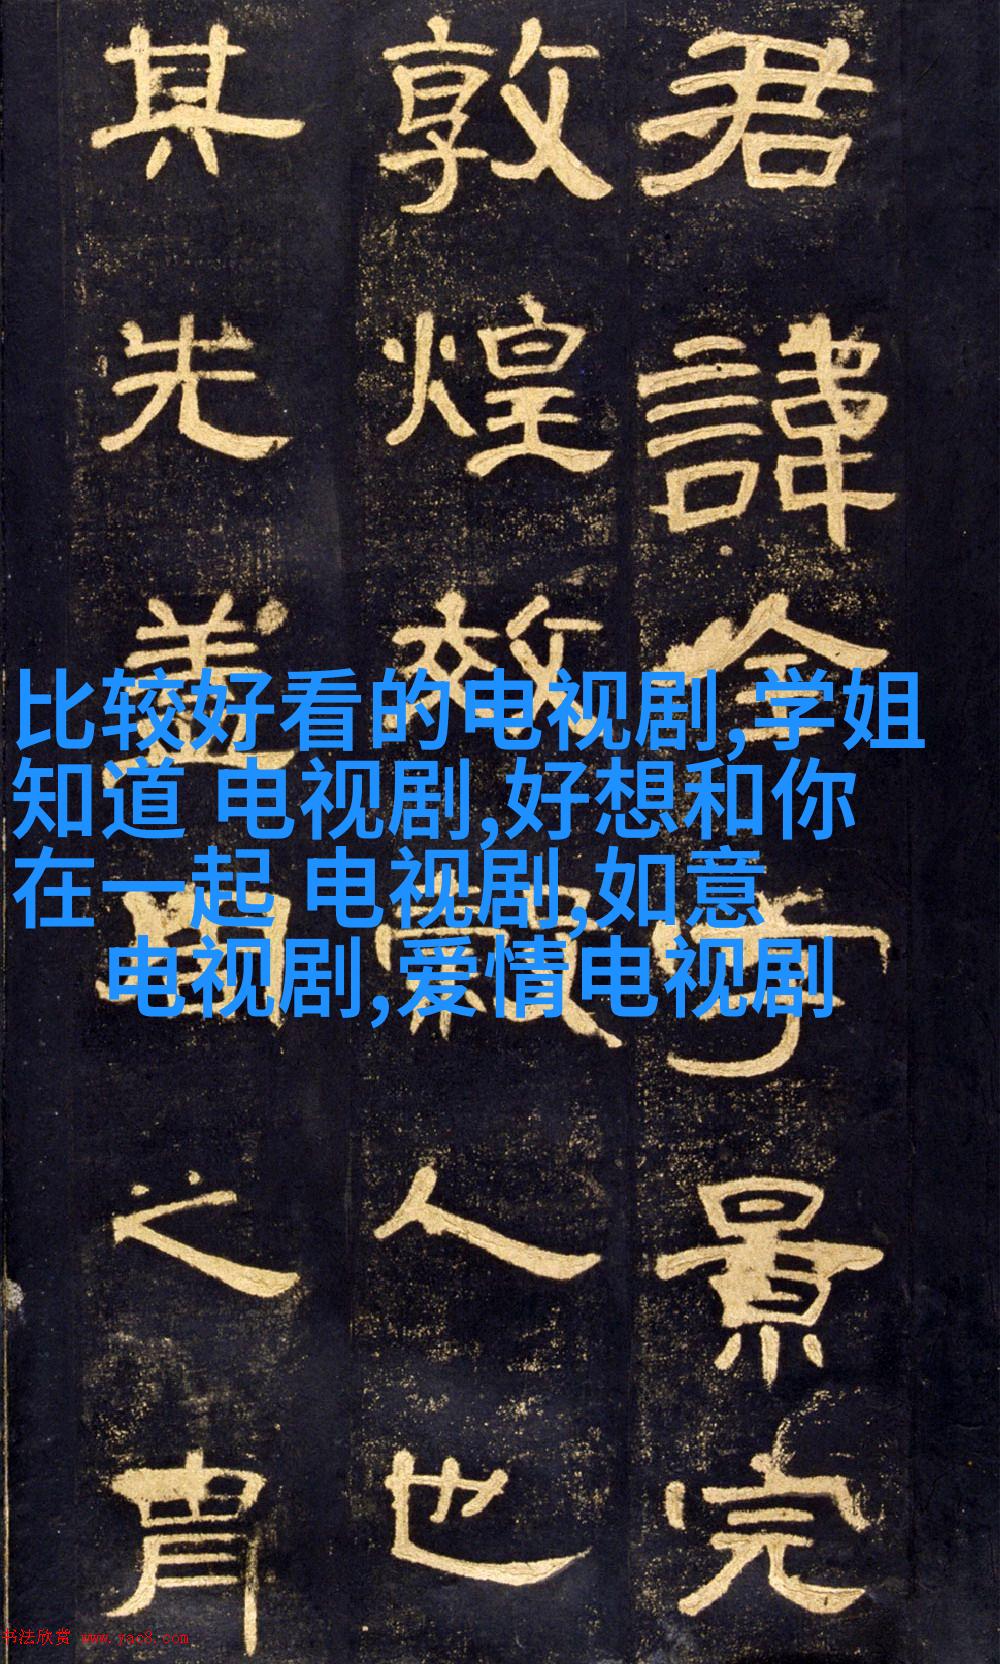 君諱全字景完
敦煌效穀人也
其先蓋周之胄
比较好看的电视剧,学姐
知道 电视剧,好想和你
在一起 电视剧,如意
电视剧,爱情电视剧
书法欣赏 www.yac8.com